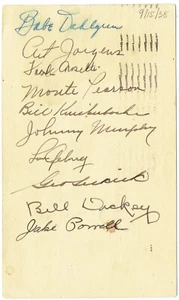 Babe Dahlgren
9/15/38
Art Jorgens
Frank Crosetti
Monte Pearson
Bill Knickerbocker
Johnny Murphy
Lou Gehrig
Geo Selkirk
Bill Dickey
Jake Powell